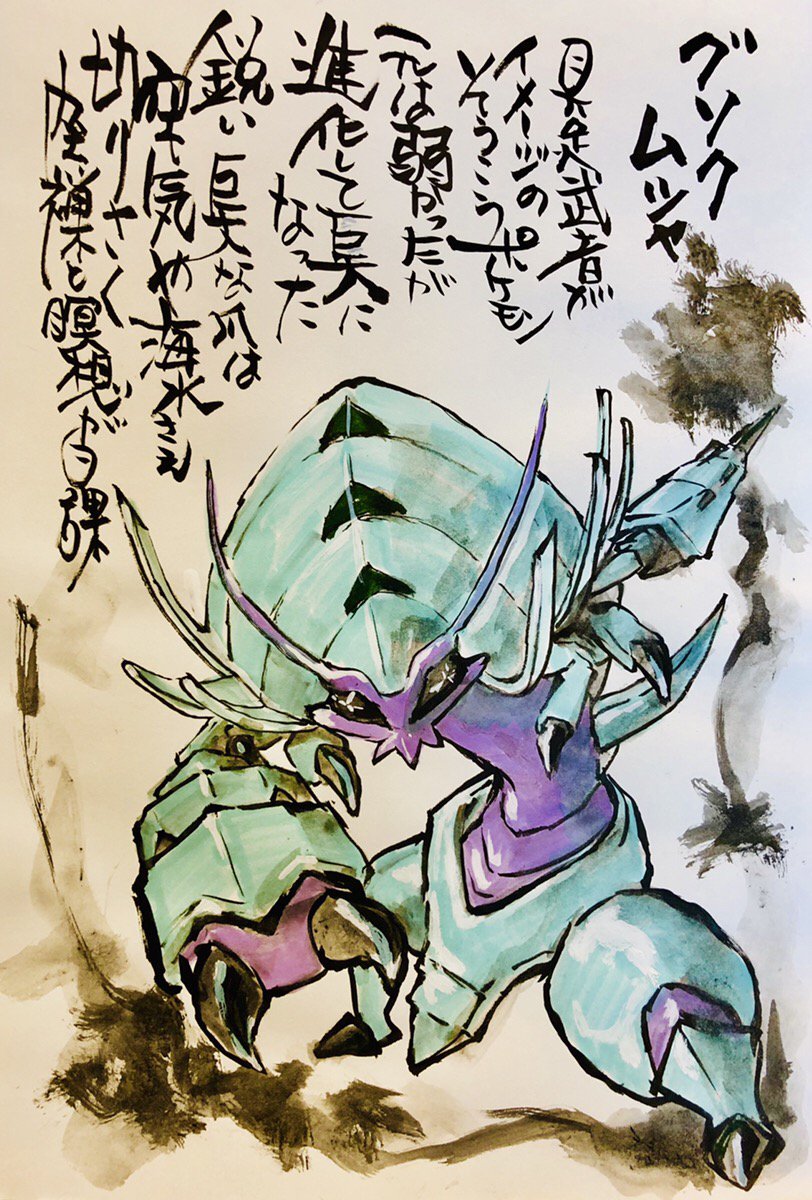 グソク
ムシャ
具足武者が
イメージの
そうこうポケモン
元は弱かったが
進化して巨大に
なった
鋭い巨大な爪は
空気や海水さえ
切りさく
座禅と瞑想が日課